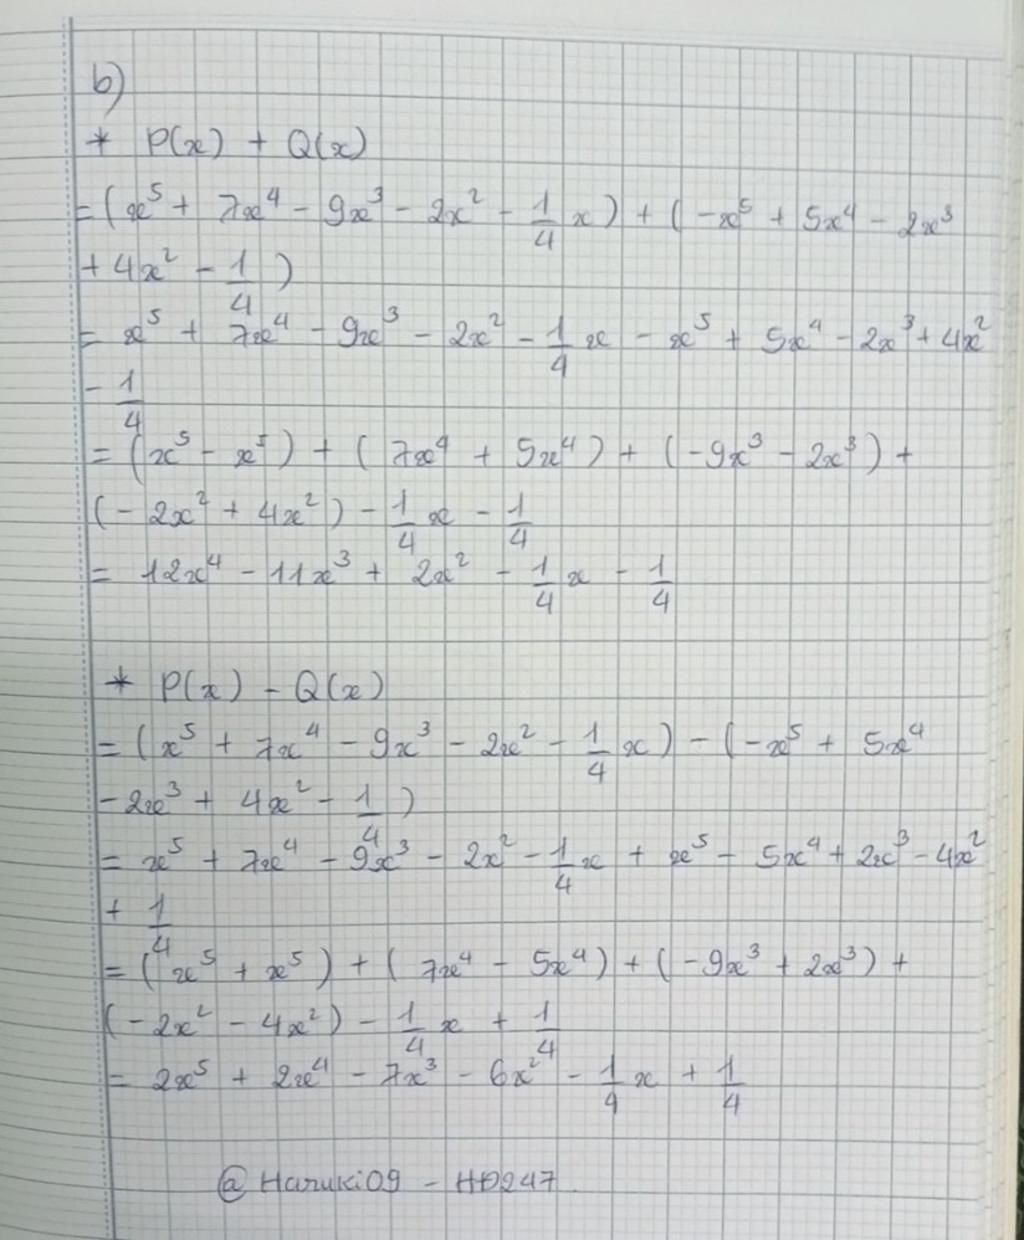 b)
* P(x) + Q(x)
= (x⁵ + 7x⁴ - 9x³ - 2x² - 1/4 x) + (-x⁵ + 5x⁴ - 2x³
+ 4x² - 1/4)
= x⁵ + 7x⁴ - 9x³ - 2x² - 1/4 x - x⁵ + 5x⁴ - 2x³ + 4x²
- 1/4
= (x⁵ - x⁵) + (7x⁴ + 5x⁴) + (-9x³ - 2x³) +
(-2x² + 4x²) - 1/4 x - 1/4
= 12x⁴ - 11x³ + 2x² - 1/4 x - 1/4
* P(x) - Q(x)
= (x⁵ + 7x⁴ - 9x³ - 2x² - 1/4 x) - (-x⁵ + 5x⁴
- 2x³ + 4x² - 1/4)
= x⁵ + 7x⁴ - 9x³ - 2x² - 1/4 x + x⁵ - 5x⁴ + 2x³ - 4x²
+ 1/4
= (x⁵ + x⁵) + (7x⁴ - 5x⁴) + (-9x³ + 2x³) +
(-2x² - 4x²) - 1/4 x + 1/4
= 2x⁵ + 2x⁴ - 7x³ - 6x² - 1/4 x + 1/4
@Haruki09 - HĐ247